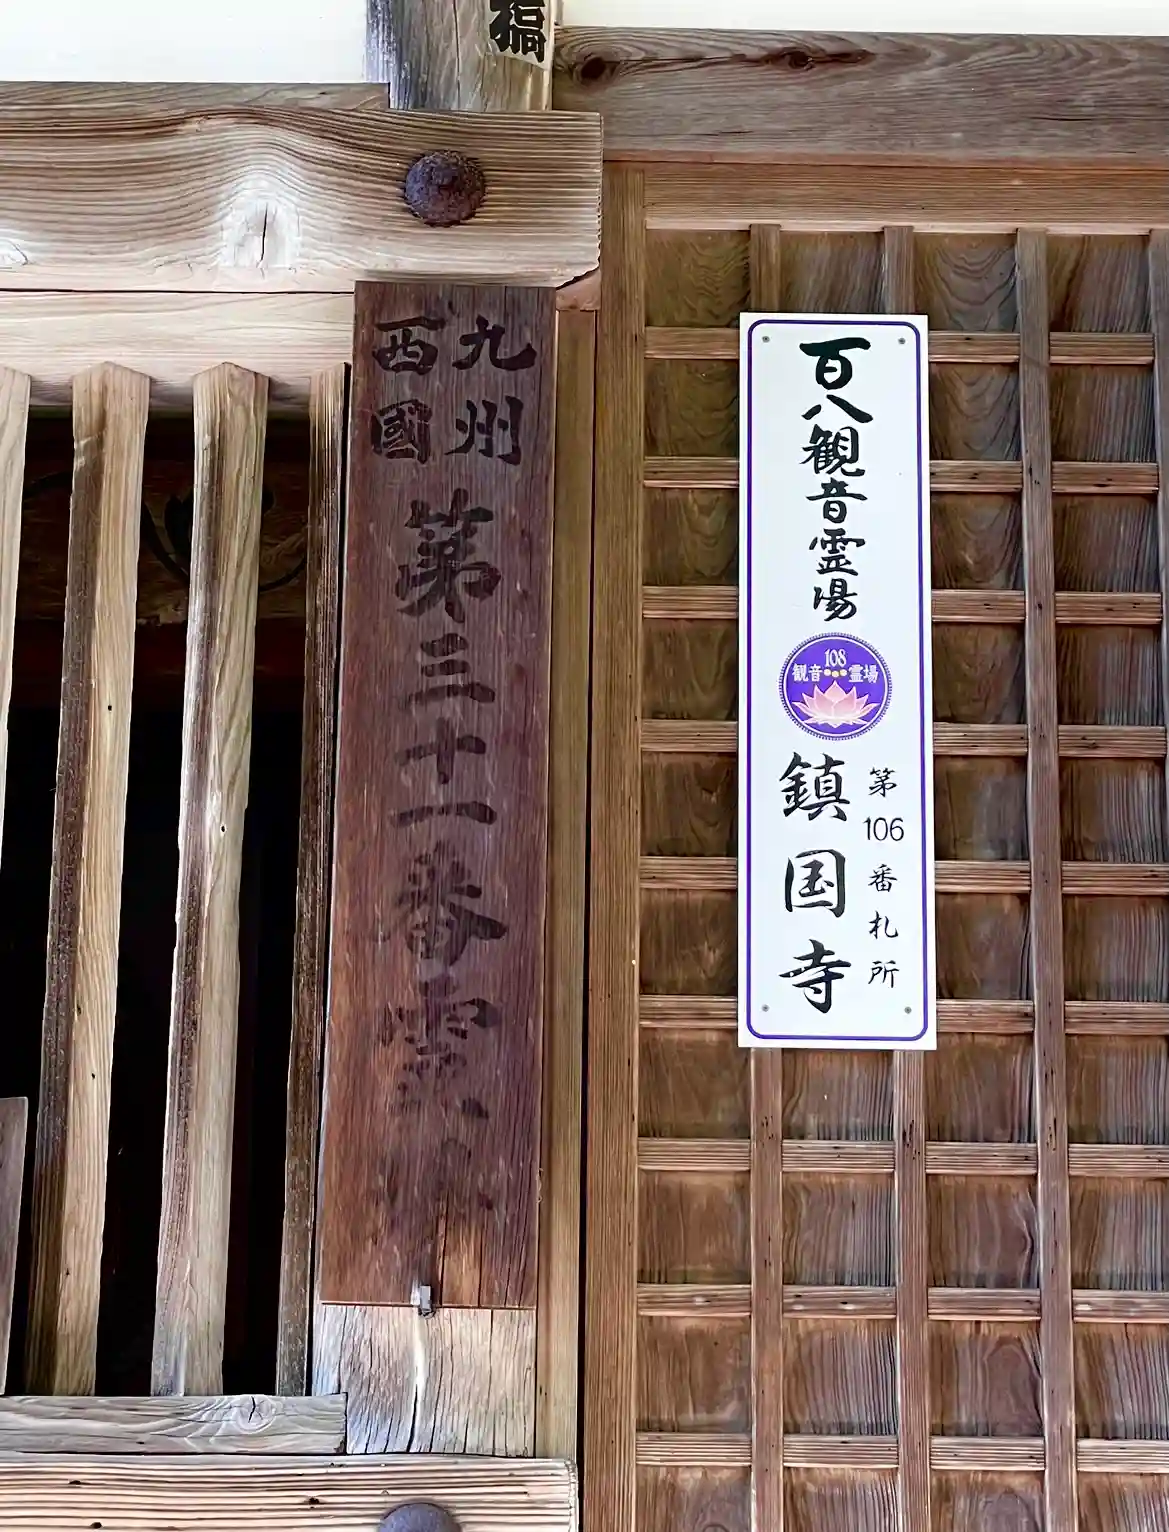 九州
西國
第三十一番霊
百八観音霊場
108
観音霊場
第106番札所
鎮国寺